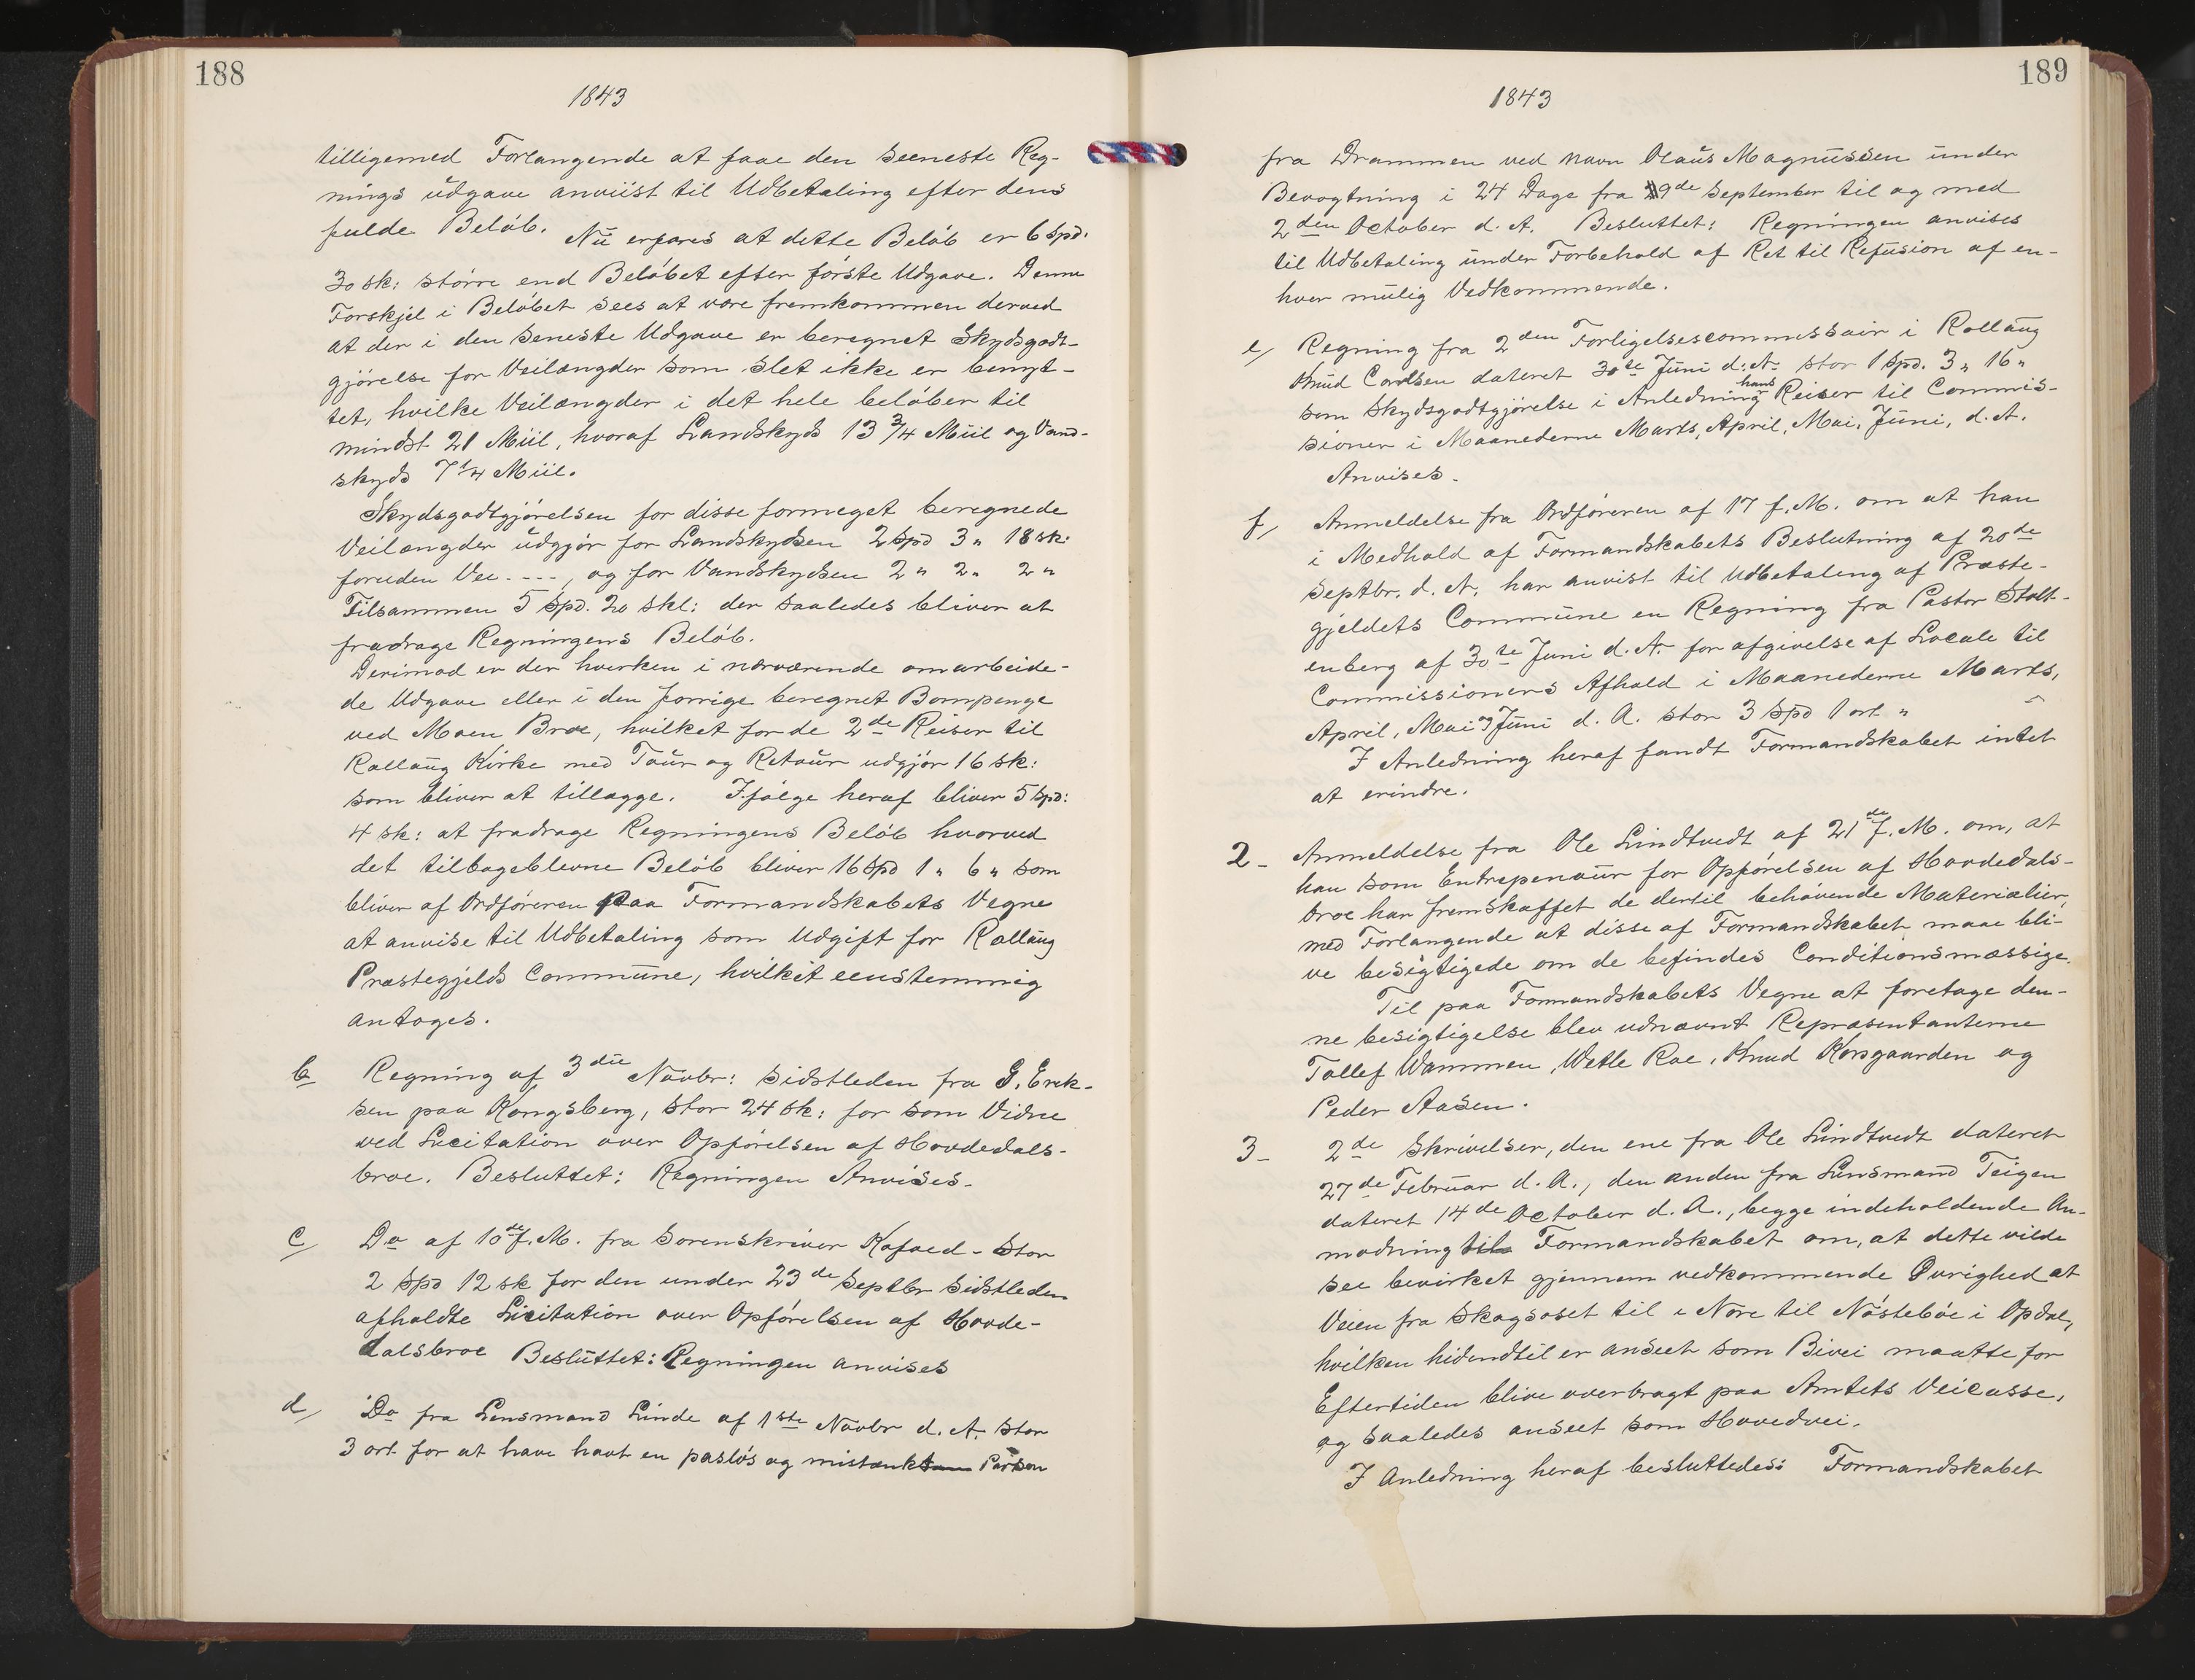 188
1843
tilligemed Forlangende at faae den seeneste Reg-
nings udgave anviist til Udbetaling efter dens
fulde Beløb. Nu erfares at dette Beløb er 6 Spd.
30 sk: större end Beløbet efter förste Udgave. Denne
Forskjel i Beløbet sees at være fremkommen derved
at der i den seneste Udgave er beregnet Skydsgodt-
gjørelse for Veilængder som slet ikke er benyt-
tet, hvilke Veilængder i det hele beløber til
mindst 21 Miil, hvoraf Landskyds 13 3/4 Miil og Vand-
skyds 7 1/4 Miil.
Skydsgodtgjørelsen for disse formeget beregnede
Veilængder udgjør for Landskydsen 2 Spd 3 " 18 sk:
foruden Vee. - - - , og for Vandskydsen 2 " 2 " 2 "
Tilsammen 5 Spd. 20 skl: der saaledes bliver at
fradrage Regningens Beløb.
Derimod er der hverken i nærværende omarbeide-
de Udgave eller i den forrige beregnet Bompenge
ved Moen Broe, hvilket for de 2de Reiser til
Rollaug Kirke med Tour og Retour udgjør 16 sk:
som bliver at tillægge. Ifølge heraf bliver 5 Spd:
4 sk: at fradrage Regningens Beløb hvorved
det tilbageblevne Beløb bliver 16 Spd 1 " 6 " som
bliver af Ordføreren paa Formandskabets Vegne
at anvise til Udbetaling som Udgift for Rollaug
Præstegjelds Commune, hvilket eenstemmig
antoges.
b Regning af 3die Novbr: sidstleden fra G. Erek-
sen paa Kongsberg, stor 24 sk: for som Vidne
ved Licitation over Opførelsen af Hovdedals-
broe. Besluttet: Regningen Anvises.
c/ Do af 10de f. M. fra Sorenskriver Kofoed - stor
2 Spd 12 sk for den under 23de Septbr sidstleden
afholdte Licitation over Opførelsen af Hovde-
dalsbroe Besluttet: Regningen anvises
d/ Do fra Lensmand Linde af 1ste Novbr d. A. stor
3 ort for at have havt en pasløs og mistænkt Person
189
1843
fra Drammen ved Navn Olaus Magnussen under
Bevogtning i 24 Dage fra 9de September til og med
2den October d. A. Besluttet: Regningen anvises
til Udbetaling under Forbehold af Ret til Refusion af en-
hver mulig Vedkommende.
e/ Regning fra 2den Forligelsescommissair i Rollaug
Knud Cordsen dateret 30te Juni d. A. stor 1 Spd. 3 " 16 "
som Skydsgodtgjørelse i Anledning hans Reiser til Commis-
sioner i Maanederne Marts, April, Mai, Juni, d. A.
Anvises.
f/ Anmeldelse fra Ordføreren af 17 f. M. om at han
i Medhold af Formandskabets Beslutning af 20de
Septbr. d. A. har anvist til Udbetaling af Præste-
gjeldets Commune en Regning fra Pastor Stolt-
enberg af 30te Juni d. A. for afgivelse af Locale til
Commissioners Afhold i Maanederne Marts,
April, Mai og Juni d. A. stor 3 Spd 1 ort "
I Anledning heraf fandt Formandskabet intet
at erindre.
2 - Anmeldelse fra Ole Lindtvedt af 21de f. M. om, at
han som Entrepenour for Opførelsen af Hovdedals-
broe har fremskaffet de dertil behøvende Materialier,
med Forlangende at disse af Formandskabet maae bli-
ve besigtigede om de befindes Conditionsmæssige.
Til paa Formandskabets Vegne at foretage den-
ne besigtigelse blev udnævnt Repræsentanterne
Tollef Wammen, Wetle Roe, Knud Korsgaarden og
Peder Aasen.
3 - 2de Skrivelser, den ene fra Ole Lindtvedt dateret
27de Februar d. A., den anden fra Lensmand Teigen
dateret 14de October d. A., begge indeholdende An-
modning til Formandskabet om, at dette vilde
see bevirket gjennem vedkommende Øvrighed at
Veien fra Skagsoset til i Nore til Nöstebøe i Opdal,
hvilken hidendtil er anseet som Bivei maatte for
Eftertiden blive overbragt paa Amtets Veicasse,
og saaledes anseet som Hovedvei.
I Anledning heraf besluttedes: Formandskabet